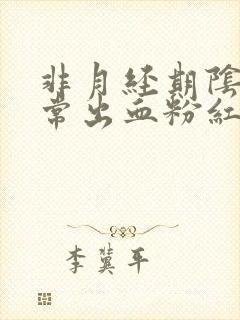 非月经期陰
常出血粉紅
李冀平